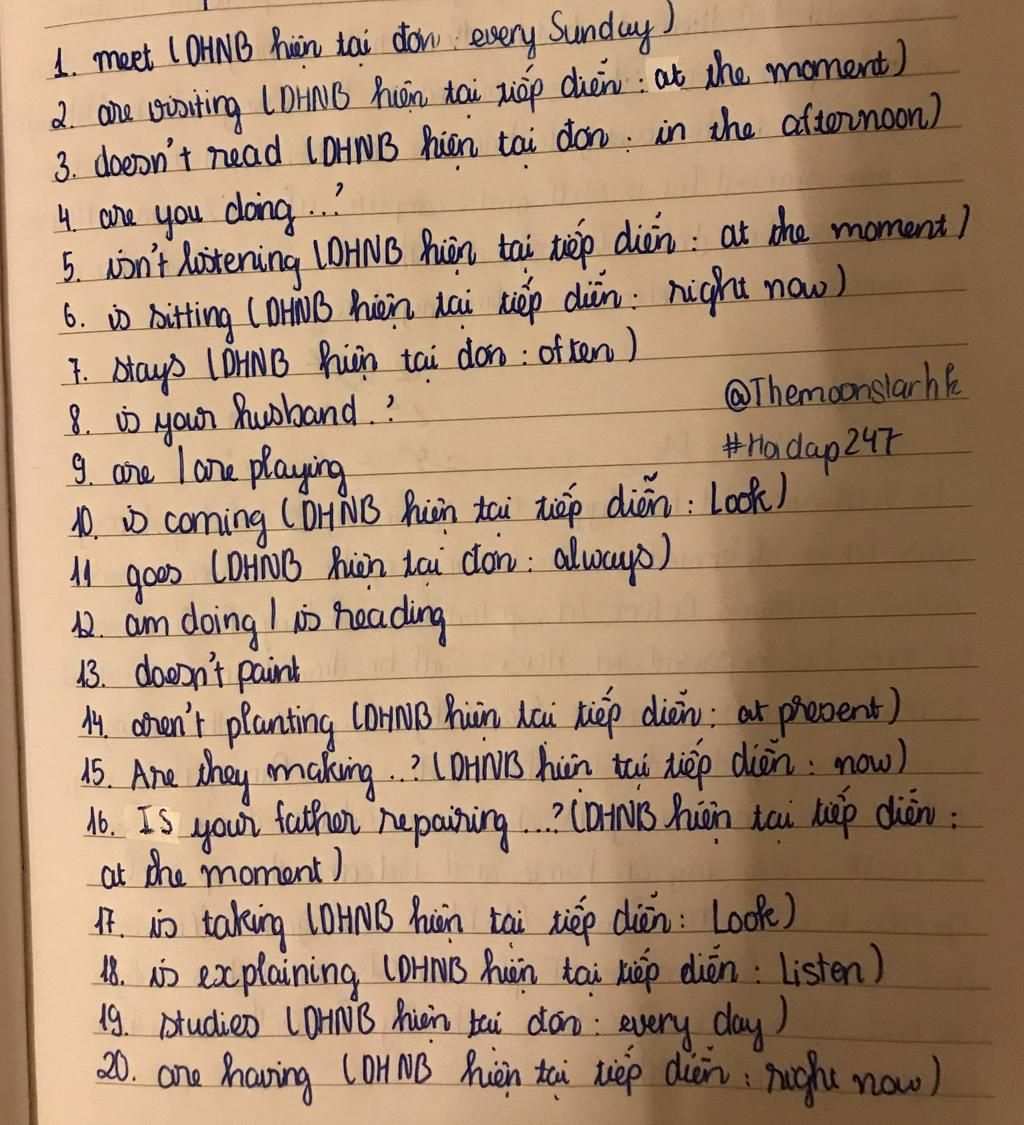 1. meet (DHNB hiện tại đơn : every Sunday)
2. are visiting (DHNB hiện tại tiếp diễn : at the moment)
3. doesn't read (DHNB hiện tại đơn : in the afternoon)
4. are you doing ...?
5. isn't listening (DHNB hiện tại tiếp diễn : at the moment)
6. is sitting (DHNB hiện tại tiếp diễn : right now)
7. stays (DHNB hiện tại đơn : often)
8. is your husband ..?
@Themoonstarhk
9. are / are playing
#Hadap247
10. is coming (DHNB hiện tại tiếp diễn : Look)
11 goes (DHNB hiện tại đơn : always)
12. am doing / is reading
13. doesn't paint
14. aren't planting (DHNB hiện tại tiếp diễn : at present)
15. Are they making ..? (DHNB hiện tại tiếp diễn : now)
16. Is your father repairing ...? (DHNB hiện tại tiếp diễn :
at the moment)
17. is taking (DHNB hiện tại tiếp diễn : Look)
18. is explaining (DHNB hiện tại tiếp diễn : Listen)
19. studies (DHNB hiện tại đơn : every day)
20. are having (DHNB hiện tại tiếp diễn : right now)